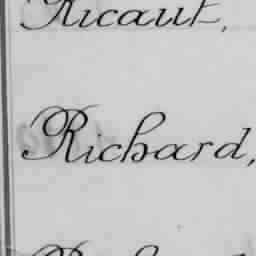 Ricaut,
Richard,